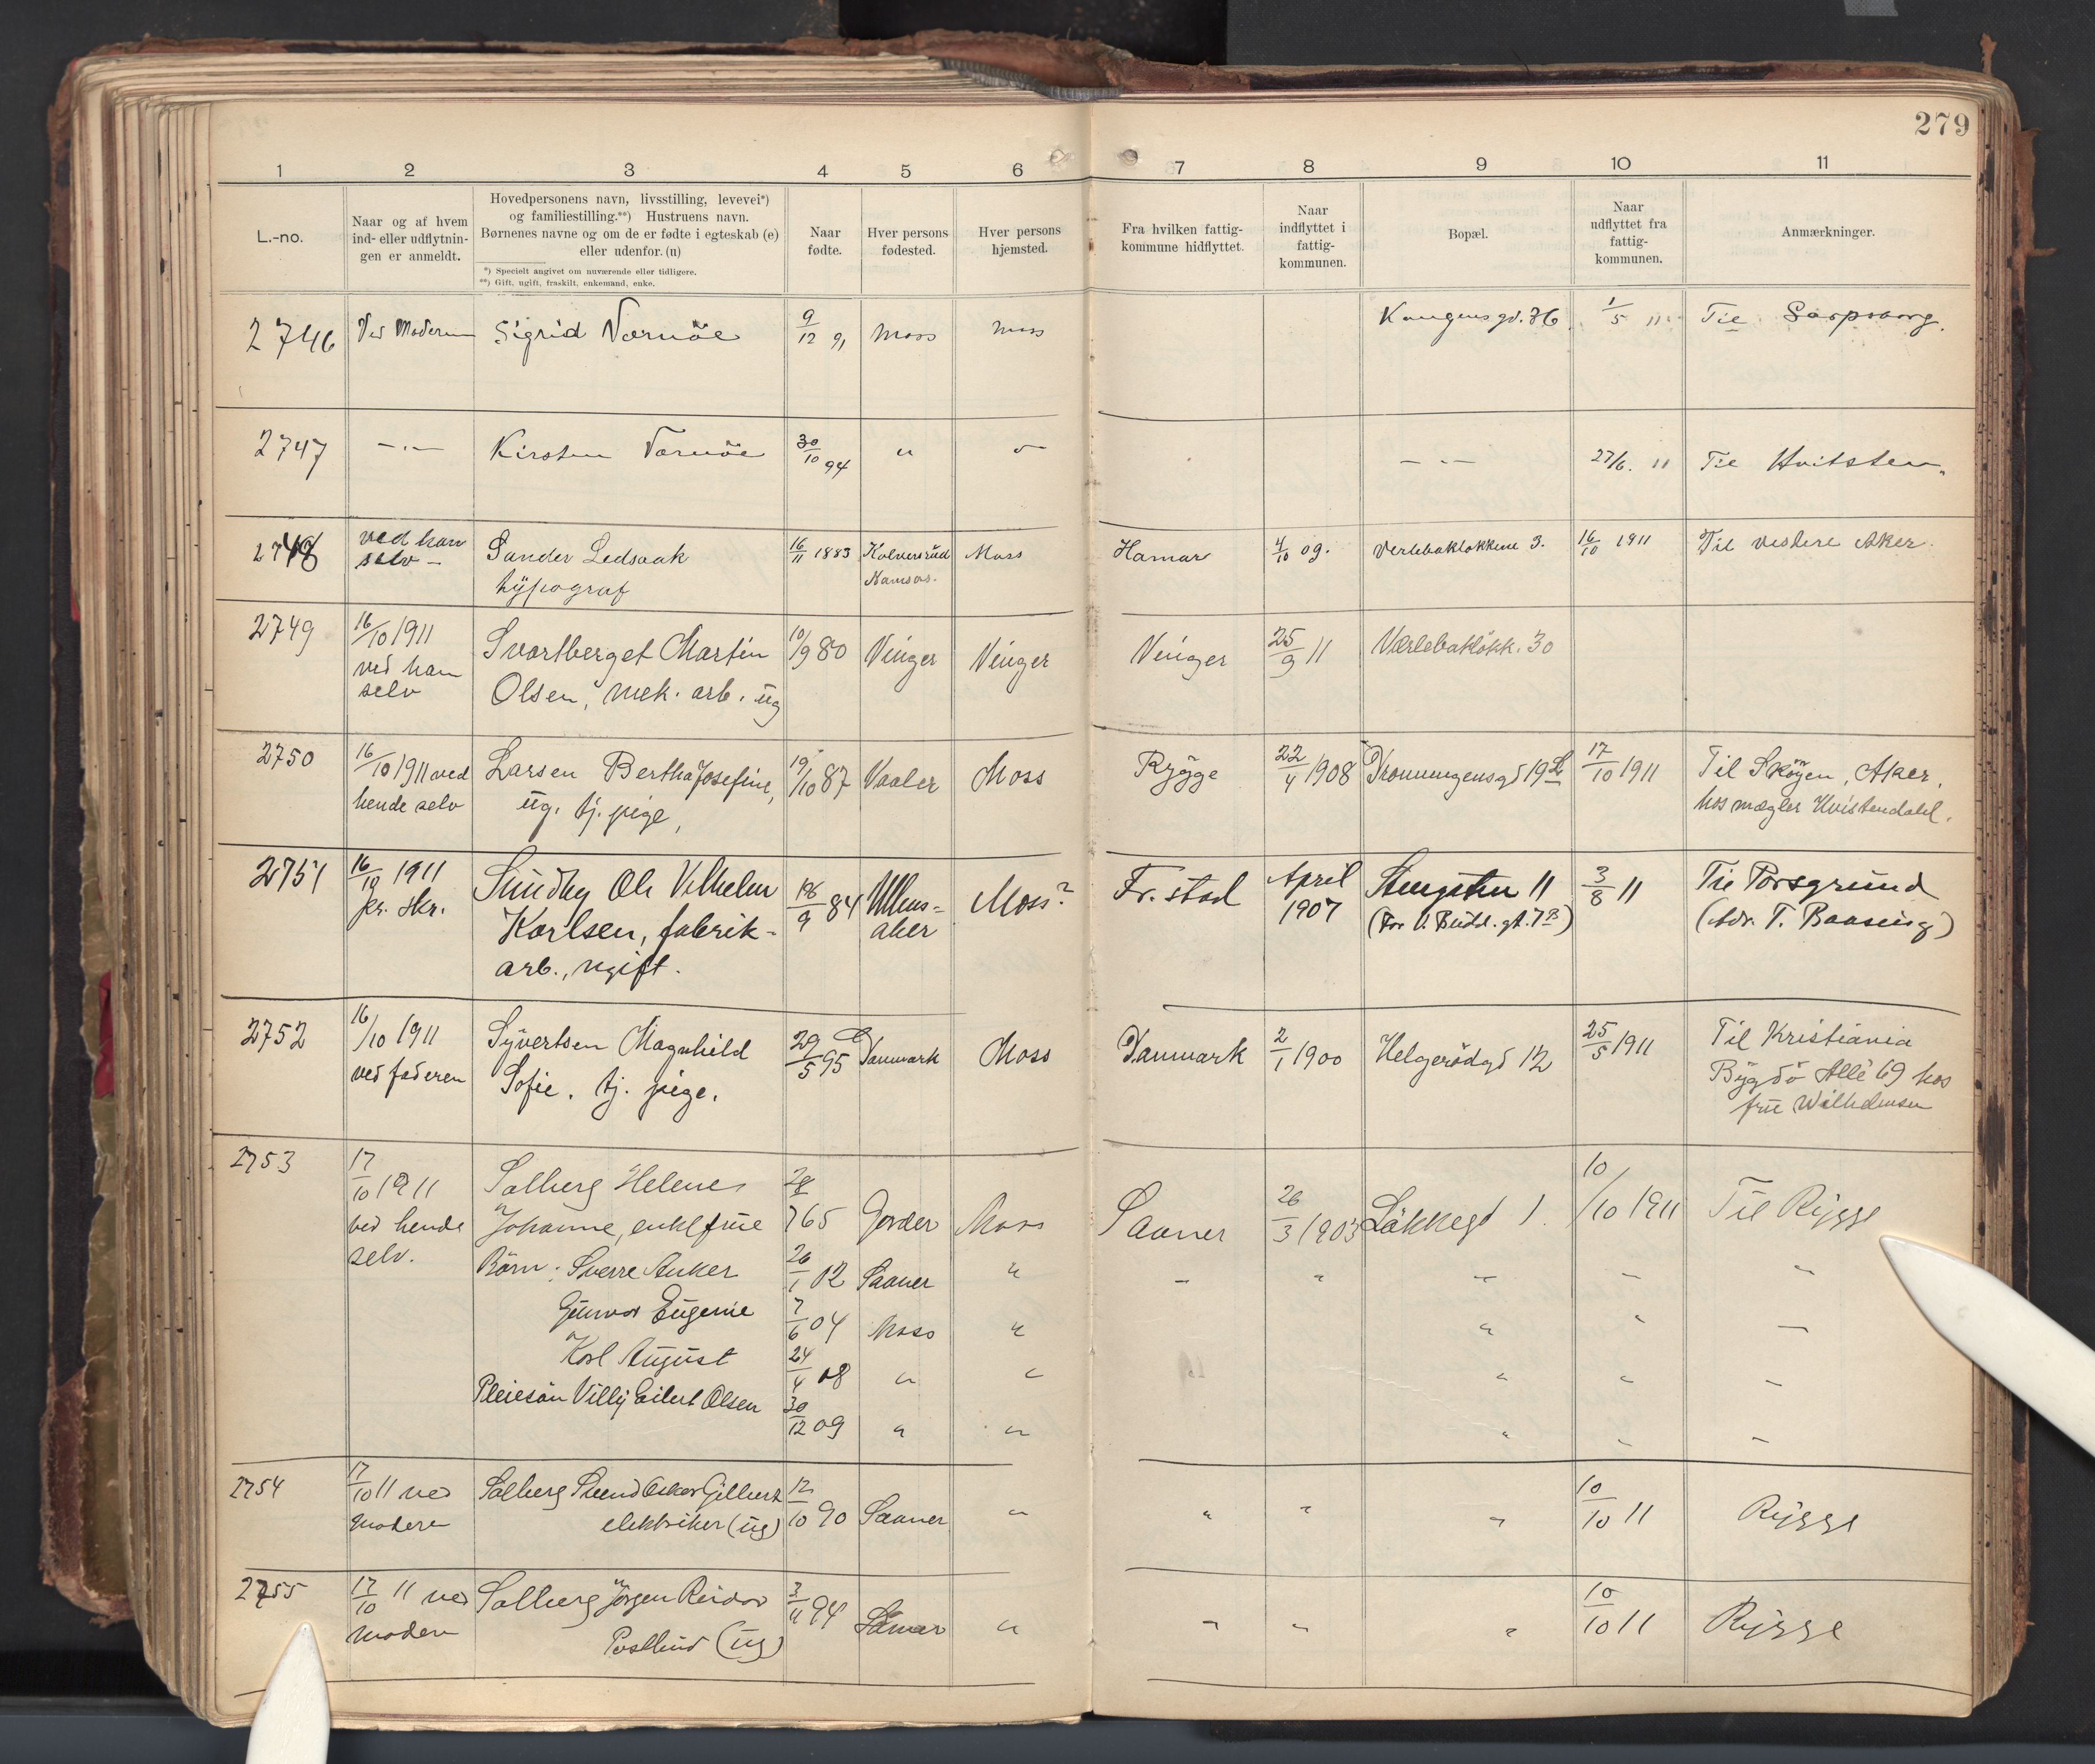 279
1 2 3 4 5 6 7 8 9 10 11
L.-no.
Naar og af hvem
ind- eller udflytnin-
gen er anmeldt.
Hovedpersonens navn, livsstilling, levevei*)
og familiestilling.**) Hustruens navn.
Børnenes navne og om de er fødte i egteskab (e)
eller udenfor. (u)
*) Specielt angivet om nuværende eller tidligere.
**) Gift, ugift, fraskilt, enkemand, enke.
Naar
fødte.
Hver persons
fødested.
Hver persons
hjemsted.
Fra hvilken fattig-
kommune hidflyttet.
Naar
indflyttet i
fattig-
kommunen.
Bopæl.
Naar
udflyttet fra
fattig-
kommunen.
Anmærkninger.
2746 Ved Moderen Sigrid Værnöe 9/12 91 Moss Moss Kongensgd. 36 1/5 11 Til Sarpsborg.
2747 — " — Kirsten Værnöe 30/10 94 " " — " — 27/6. 11 Til Hvitsten.
2748 ved han Sander Ledsaak 16/11 1883 Moss Hamar 4/10 09. 3. 16/10 1911 Til vestre Aker.
selv —
typograf
2749 16/10 1911 Svartberget Martin 10/9 80 Vinger Vinger Vinger 25/9 11 Værlebaklökk. 30
ved han
selv Olsen, mek. arb. ug
2750 16/10 1911 ved Larsen Bertha Josefine, 19/10 87 Vaaler Moss Rygge 22/4 1908 Dronningensgd 19 17/10 1911 Til Sköyen, Aker,
hende selv ug. tj. pige, hos mægler Kvistendahl.
2751 16/10 1911 Sundby Ole Vilhelm 84 Ullens- Moss? Fr.stad April Stengaten 11 3/8 11 Til Porsgrund
pr. skr. Karlsen, fabrik- aker 1907
arb., ugift.
2752 16/10 1911 Syvertsen Magnhild 29/5 95 Danmark Moss Danmark 2/1 1900 Helgerödgd 12 25/5 1911 Til Kristiania
ved faderen Sofie. tj. pige. Bygdö Allé 69 hos
frue Wilhelmsen
2753 17/10 1911 Solberg Helene
ved hende Johanne, enkefrue 65 Moss Saaner 26/3 1903 Løkkegd 1. 10/10 1911 Til Rygge
selv. Børn: Sverre Anker 26/1 02 Saaner " — " " — "
Gunvor Eugenie 7/6 04 Moss " " " —
Karl August 24/4 08 " " " " "
Pleiesøn Villy Eilert Olsen 30/12 09 " " " " "
2754 17/10 11 ved Solberg Svend Oskar Gilbert 12/10 90 Saaner " " " " 10/10 11 Rygge
moderen elektriker (ug)
2755 17/10 11 ved Solberg Jørgen Reidar 3/11 94 Saaner " " " " 10/10 11 Rygge
moderen Postbud (ug)